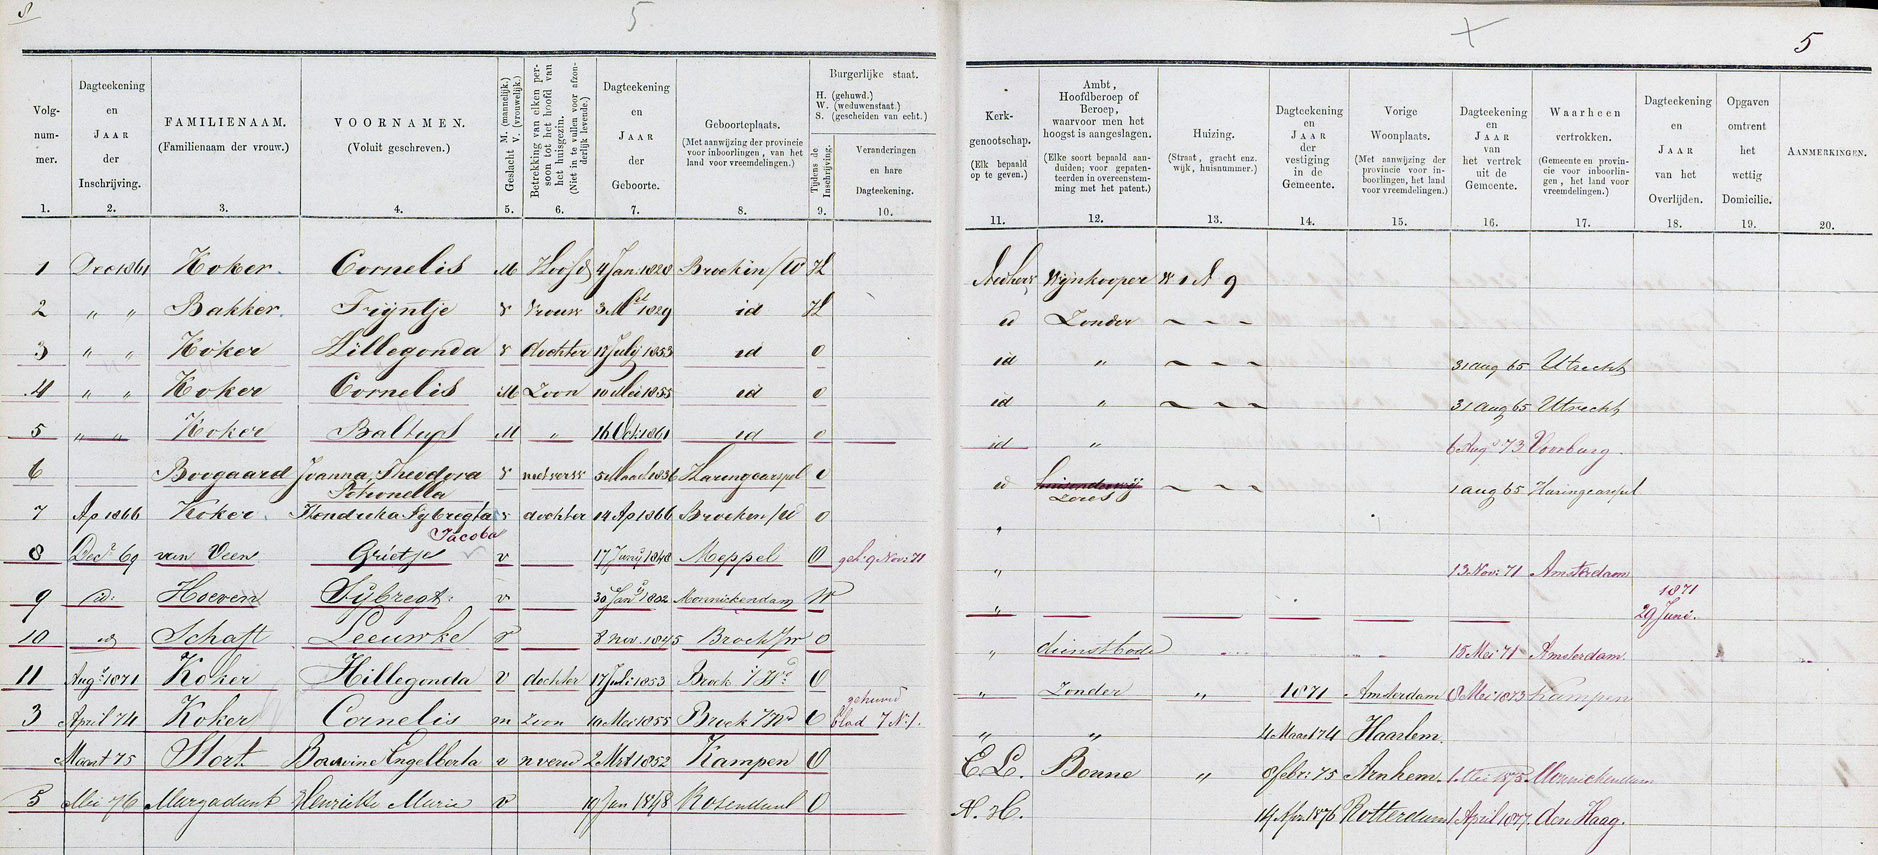 8
5.
5
Volg-
num-
mer.
1.
Dagteekening
en
JAAR
der
Inschrijving.
2.
FAMILIENAAM.
(Familienaam der vrouw.)
3.
VOORNAMEN.
(Voluit geschreven.)
4.
Geslacht M. (mannelijk.)
V. (vrouwelijk.)
5.
Betrekking van elken per-
soon tot het hoofd van
het huisgezin.
(Niet in te vullen voor afzon-
derlijk levende.)
6.
Dagteekening
en
JAAR
der
Geboorte.
7.
Geboorteplaats.
(Met aanwijzing der provincie
voor inboorlingen, van het
land voor vreemdelingen.)
8.
Burgerlijke staat.
H. (gehuwd.)
W. (weduwenstaat.)
S. (gescheiden van echt.)
Tijdens de
Inschrijving.
9.
Veranderingen
en hare
Dagteekening.
10.
Kerk-
genootschap.
(Elk bepaald
op te geven.)
11.
Ambt,
Hoofdberoep of
Beroep,
waarvoor men het
hoogst is aangeslagen.
(Elke soort bepaald aan-
duiden; voor gepaten-
teerden in overeenstem-
ming met het patent.)
12.
Huizing.
(Straat, gracht enz.
wijk, huisnummer.)
13.
Dagteekening
en
JAAR
der
vestiging
in de
Gemeente.
14.
Vorige
Woonplaats.
(Met aanwijzing der
provincie voor in-
boorlingen, het land
voor vreemdelingen.)
15.
Dagteekening
en
JAAR
van
het vertrek
uit de
Gemeente.
16.
Waarheen
vertrokken.
(Gemeente en provin-
cie voor inboorlin-
gen, het land voor
vreemdelingen.)
17.
Dagteekening
en
JAAR
van het
Overlijden.
18.
Opgaven
omtrent
het
wettig
Domicilie.
19.
AANMERKINGEN.
20.
1 Dec 1861 Koker Cornelis M Hoofd 4 Jan: 1828 Broek in/W H Wijnkooper W 1 N 9
2 " " Bakker Trijntje V Vrouw 3 1829 id H id Zonder
3 " " Koker Hillegonda V dochter 17 July 1853 id 0 id " 31 aug 65 Utrecht
4 " " Koker Cornelis M Zoon 10 Mei 1855 id 0 id " 31 aug 65 Utrecht
5 " " Koker M " 16 Oct: 1861 id 0 id " 6 Augs 73 Voorburg
6 Boogaard Joanna Theodora V 5 Maart 1836 Haringcarspel 0 id 1 aug 65 Haringcarspel
Petronella
7 Ap 1866 Koker Hendrika Sybregta V dochter 14 Ap 1866 Broek in/W 0 "
Jacoba
8 Decr 69 van Veen Grietje v 17 Juny 1848 Meppel 0 geh: 9 Nov: 71 " 13 Nov: 71 Amsterdam
9 id: Hoeven Sybregt v 30 Jany 1802 Monnickendam W " 1871
29 Juni.
10 id Schaft Leeuwke V 8 nov. 1845 Broek i/w 0 " dienstbode 15 Mei 71 Amsterdam.
11 Augs 1871 Koker Hillegonda v dochter 17 Juli 1853 Broek i/Wd 0 " Zonder " 1871 Amsterdam 8 Mei 1873 Kampen
3 April 74 Koker Cornelis m zoon 10 Mei 1855 Broek i/Wd 0 gehuwd
blad 7 No 1. " " 4 Maart 74 Haarlem.
Maart 75 Stort Bouwine Engelberta v 2 Mrt 1852 Kampen 0 E. L. Bonne " 8 febr: 75 Arnhem 1 Mei 1875 Monnickendam
5 Mei 76 Margadant Henriette Marie v 19 Jan 1848 Rosendaal 0 N. H. 14 Apr. 1876 Rotterdam 1 April 1877 den Haag.